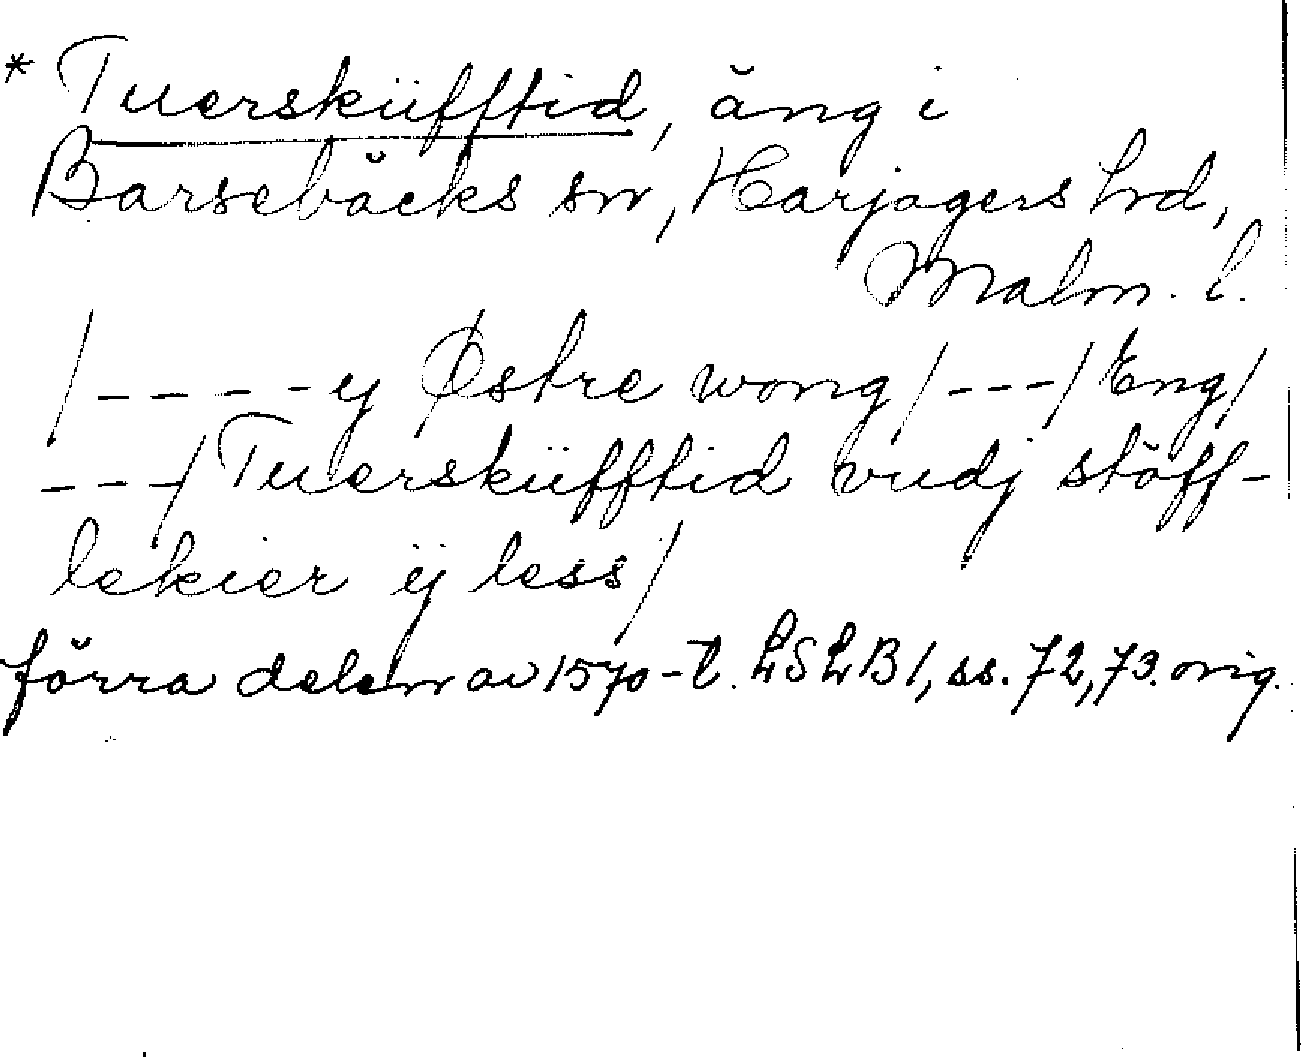 * Tuersküfftid, äng i
Barsebäcks sn, Harjagers hrd,
Malm. l.
/-----y Østre wong/---/Eng/
---/Tuersküfftid vudj stöff-
lekier ÿ less/
förra delen av 1570-t. LSLB 1, ss. 72, 73. orig.